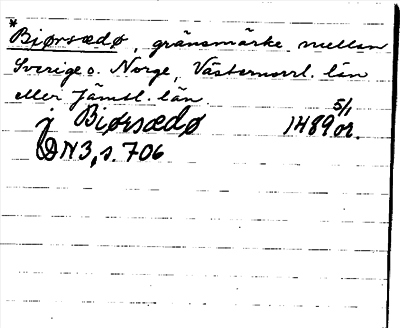 *Bjørsædø, gränsmärke mellan
Sverige o. Norge, Västernorrl. län
eller Jämtl. län.
j Bjørsædø 1489 5/1 or.
DN3, s. 706